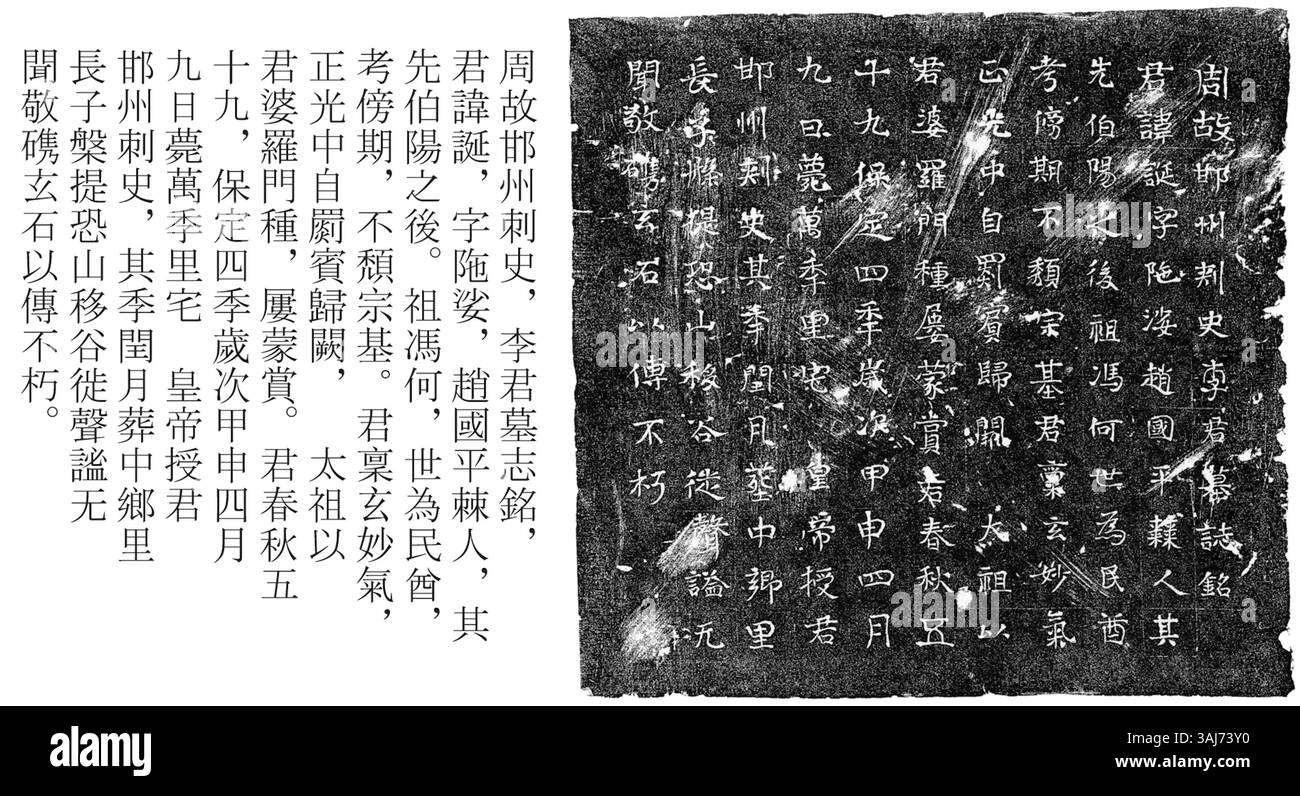 周故邯州刺史，李君墓志銘，
君諱誕，字陁娑，趙國平棘人，其
先伯陽之後。祖馮何，世為民酋，
考傍期，不頹宗基。君稟玄妙氣，
正光中自罽賓歸闕，　太祖以
君婆羅門種，屢蒙賞。君春秋五
十九，保定四季歲次甲申四月
九日薨萬季里宅　皇帝授君
邯州刺史，其季閏月葬中鄉里
長子槃提恐山移谷徙聲謐无
聞敬玄石以傳不朽。
周故邯州刺史李君墓誌銘
君諱誕字陁娑趙國平棘人其
先伯陽之後祖馮何世為民酋
考傍期不頹宗基君稟玄妙氣
正光中自罽賓歸闕　太祖以
君婆羅門種屢蒙賞君春秋五
十九保定四季歲次甲申四月
九日薨萬季里宅　皇帝授君
邯州刺史其季閏月葬中鄉里
長子槃提恐山移谷徙聲謐无
聞敬玄石以傳不朽
alamy
Image ID: 3AJ73Y0
www.alamy.com